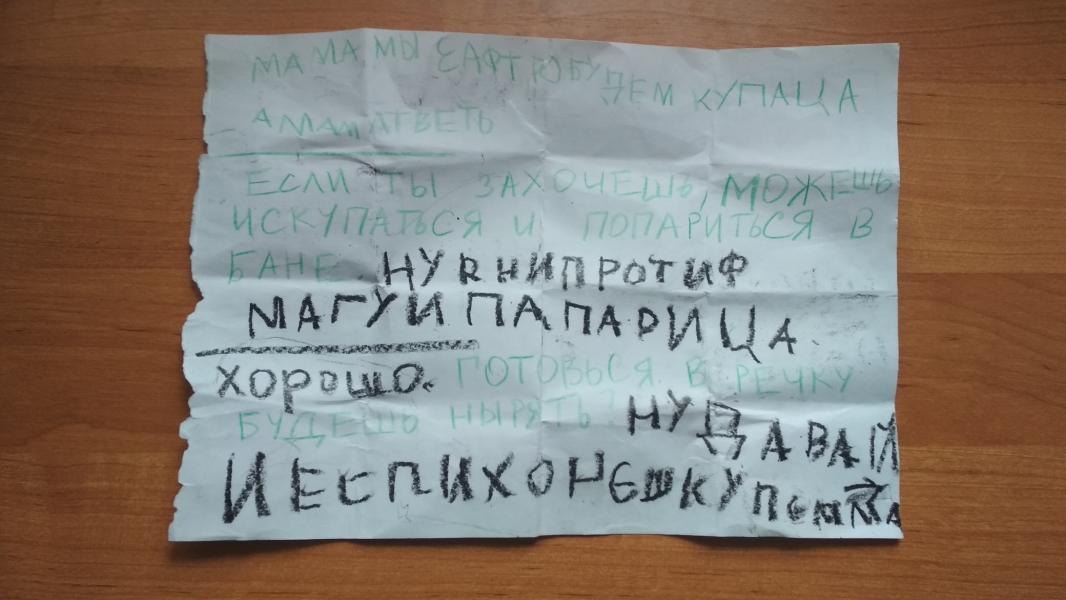 МАМА МЫ САФТРО БУДЕМ КУПАЦА
АМАМ АТВЕТЬ
ЕСЛИ ТЫ ЗАХОЧЕШЬ, МОЖЕШЬ
ИСКУПАТЬСЯ И ПОПАРИТЬСЯ В
БАНЕ. НУ Я НИ ПРОТИФ
МАГУ И ПАПАРИЦА
ХОРОШО. ГОТОВЬСЯ. В РЕЧКУ
БУДЕШЬ НЫРЯТЬ? НУ ДАВАЙ
И ЕСПИ ХОНЕШ КУП